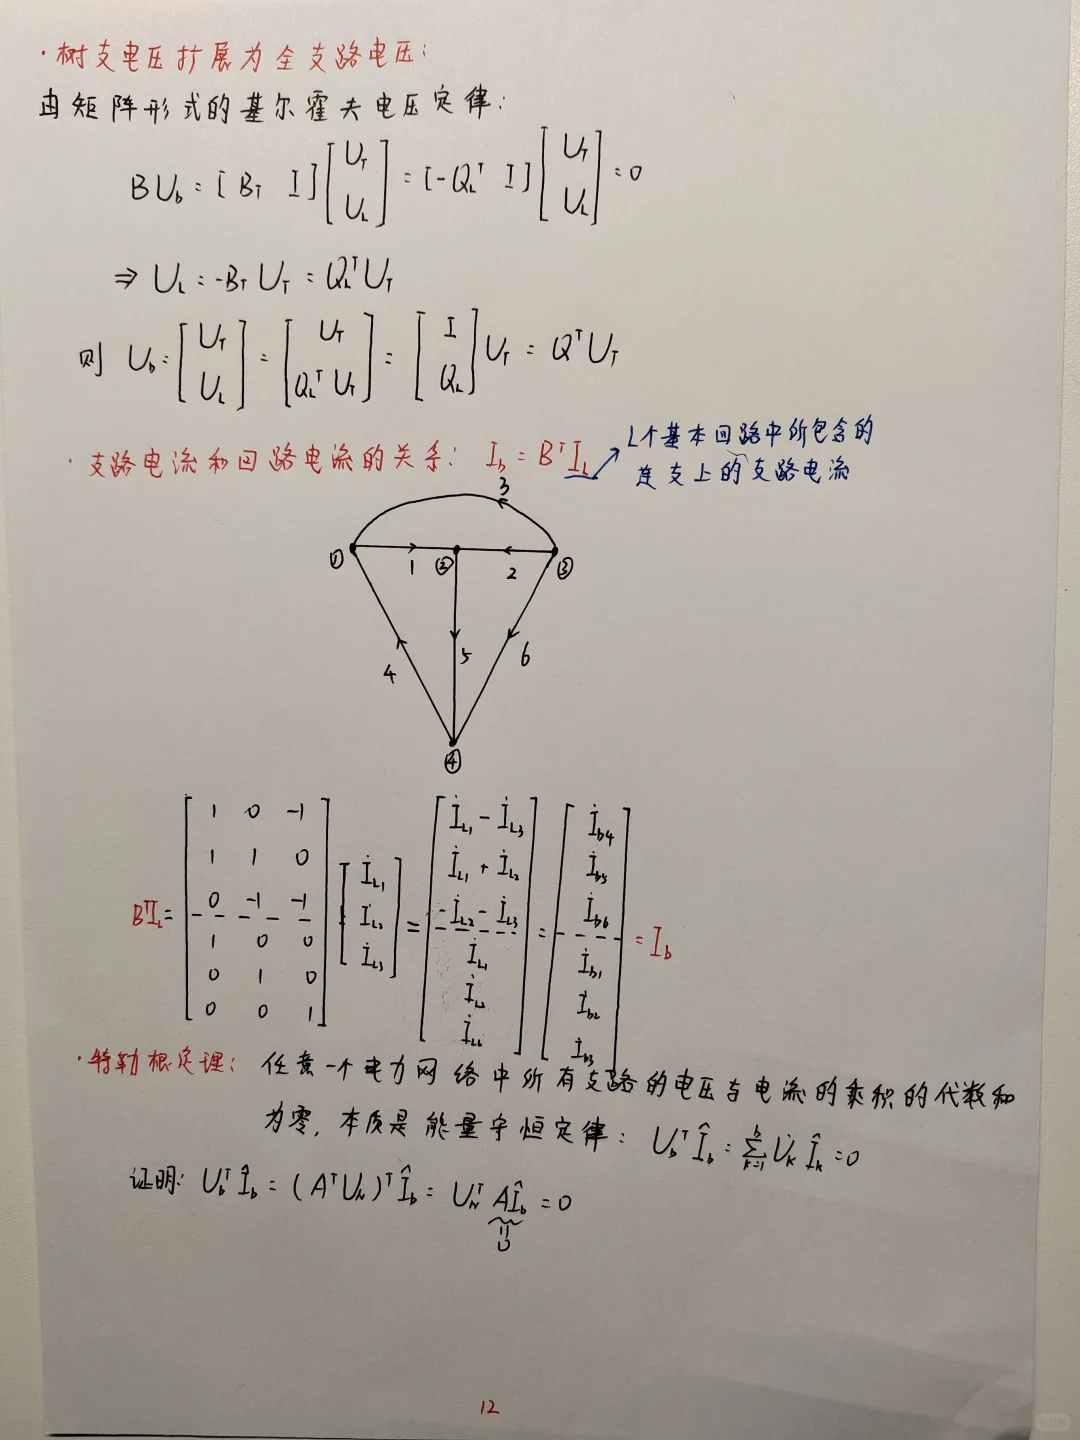 · 树支电压扩展为全支路电压:
由矩阵形式的基尔霍夫电压定律:
B U_b = [ B_T I ] [ U_T ; U_L ] = [ -Q_L^T I ] [ U_T ; U_L ] = 0
⇒ U_L = -B_T U_T = Q_L^T U_T
则 U_b = [ U_T ; U_L ] = [ U_T ; Q_L^T U_T ] = [ I ; Q_L ] U_T = Q^T U_T
· 支路电流和回路电流的关系: I_b = B^T I_L
L个基本回路中所包含的
连支上的支路电流
3
① 1 ② 2 ③
4 5 6
④
B^T I_L = [ 1 0 -1 ; 1 1 0 ; 0 -1 -1 ; 1 0 0 ; 0 1 0 ; 0 0 1 ] [ İ_L1 ; İ_L2 ; İ_L3 ] = [ İ_L1 - İ_L3 ; İ_L1 + İ_L2 ; -İ_L2 - İ_L3 ; İ_L1 ; İ_L2 ; İ_L3 ] = [ İ_b4 ; İ_b5 ; İ_b6 ; İ_b1 ; İ_b2 ; İ_b3 ] = I_b
· 特勒根定理: 任意一个电力网络中所有支路的电压与电流的乘积的代数和
为零, 本质是能量守恒定律: U_b^T Î_b = Σ_{k=1}^{b} U̇_k Î_k = 0
证明: U_b^T Î_b = (A^T U_N)^T Î_b = U_N^T A Î_b = 0
=
0
12